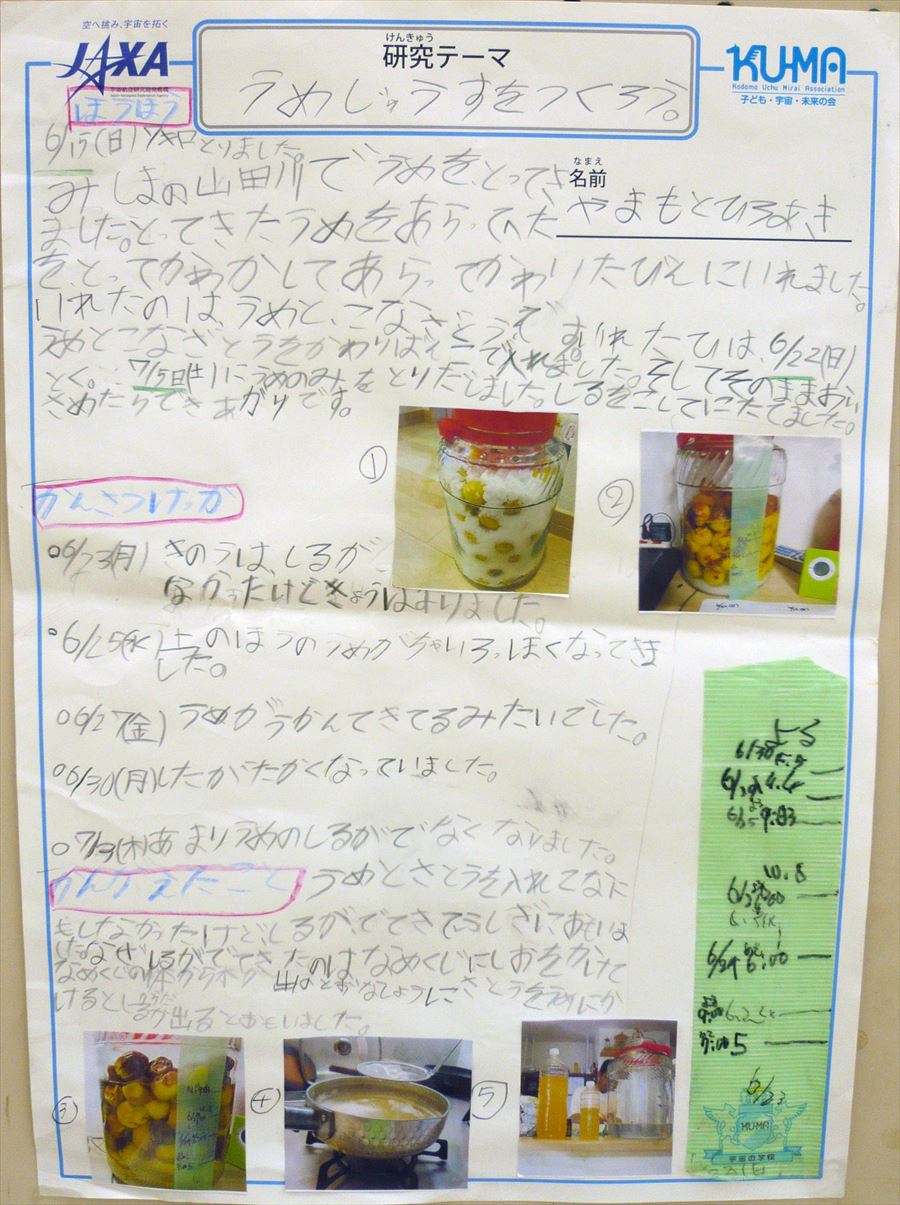 空へ挑み、宇宙を拓く
JAXA
宇宙航空研究開発機構
Japan Aerospace Exploration Agency
けんきゅう
研究テーマ
うめじゅうすをつくろう。
KUMA
Kodomo Uchu Mirai Association
子ども・宇宙・未来の会
ほうほう
6/15(日)1キロとりました。
みしまの山田川でうめを、とってき
なまえ
名前
やまもとひろあき
ました。とってきたうめをあらってへた
を、とってかわかしてあらってかわりたびんにいれました。
いれたのはうめと、こなざとうです。いれたひは、6/22(日)
うめとこなざとうをかわりばんこで入れました。そしてそのままおい
とく。7/5(土)にうめのみをとりだしました。しるをこしてにたてました。
さめたらできあがりです。
①
②
かんさつけっか
○6/23(月)きのうは、しるが
なかったけどきょうはありました。
○6/25(水)上のほうのうめがちゃいろっぽくなってきま
した。
○6/27(金)うめがうかんできてるみたいでした。
○6/30(月)したがたかくなっていました。
○7/3(木)あまりうめのしるがでなくなりました。
かんがえたこと
うめとさとうを入れてなに
もしなかったけど、しるが、でてきてふしぎにおもいま
した。なぜしるがでてきたのはなめくじにしおをかけて
なめくじの体から水が出るとおなじように さとうをうめにか
けるとしるが出るとおもいました。
③
④
⑤
よる
6/30
9.83
10.8
6/24
6:00
5
6/23
KUMA
宇宙の学校